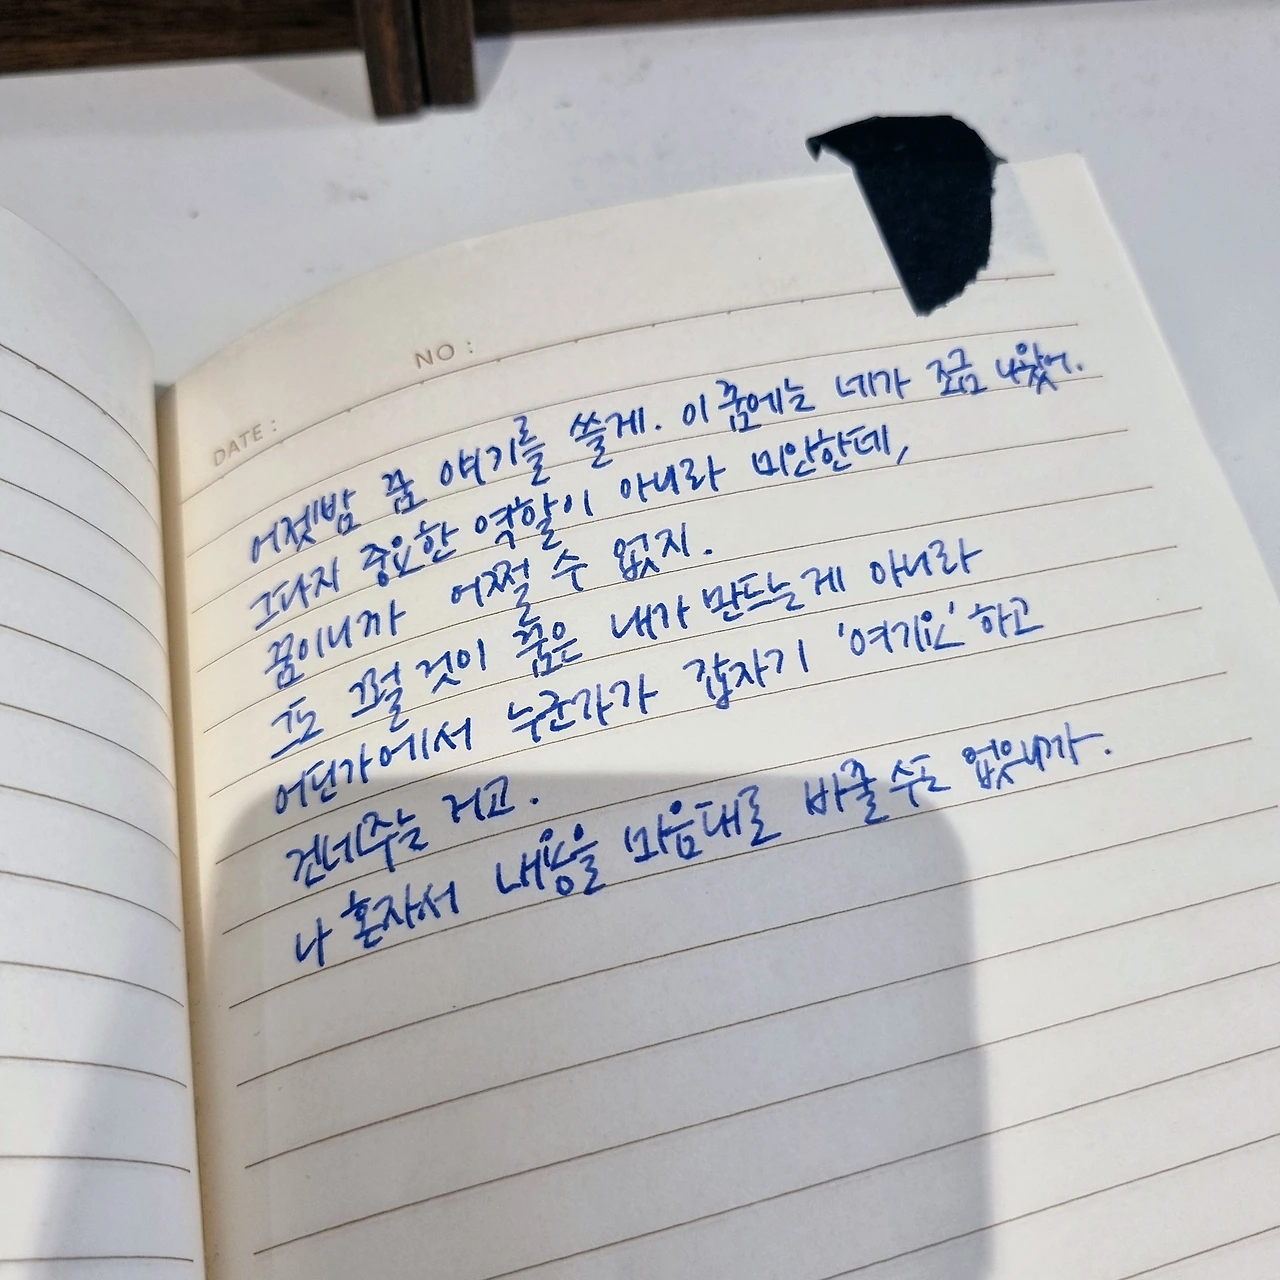 NO :
DATE :
어젯밤 꿈 얘기를 쓸게. 이 꿈에는 네가 조금 나왔어.
그다지 중요한 역할이 아니라 미안한데,
꿈이니까 어쩔 수 없지.
그도 그럴 것이 꿈은 내가 만드는게 아니라
어딘가에서 누군가가 갑자기 '여기요' 하고
건네주는 거고.
나 혼자서 내용을 마음대로 바꿀 수도 없으니까.